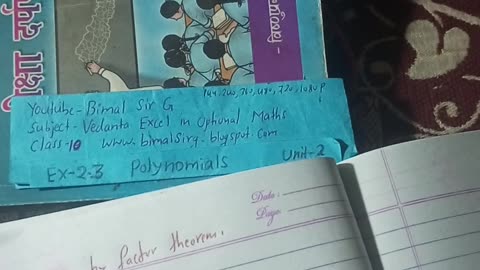 शिक्षा दर्पण
144, 240, 360, 480, 720, 1080 P
Youtube - Bimal Sir G
Subject - Vedanta Excel in Optional Maths
Class - 10 www.bimalsirg.blogspot.com
EX-2.3 Polynomials Unit-2
Date:
Page:
by factor theorem.